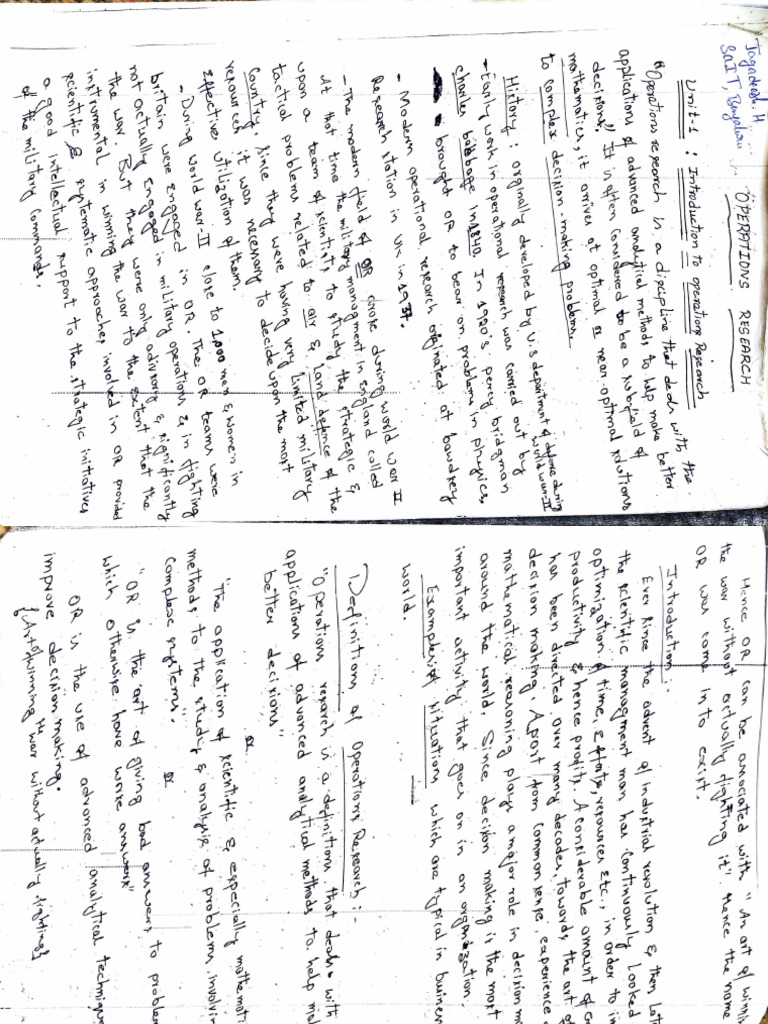 Jagadeesh. H
SaIT, Bengaluru
OPERATIONS RESEARCH
Unit-1 : Introduction to operations Research
"Operations research is a discipline that deals with the
applications of advanced analytical methods to help make better
decisions." It is often considered to be a subfield of
mathematics, it arrives at optimal or near optimal solutions
to complex decision-making problems.
History : orginally developed by U.S department of defense during
world war-II
- Early work in operational research was carried out by
charles babbage in 1840. In 1920's percy bridgman
brought OR to bear on problems in physics,
- Modern operational research originated at bawdsey
Research station in UK in 1937.
- The modern field of OR arose during world war II
At that time the military managment in England called
upon a team of scientists to study the strategic &
tactical problems related to air & land defence of the
Country. Since they were having very limited military
resources it was necessary to decide upon the most
effective utilization of them.
- During world war-II close to 1,000 men & women in
britain were engaged in OR. The OR teams were
not actually engaged in military operations & in fighting
the war. But they were only advisory & significantly
instrumental in winning the war to the extent that the
scientific & systematic approaches involved in OR provided
a good intellectual support to the strategic initiatives
of the military commands.
Hence OR can be associated with "An art of
the war without actually fighting it". Hence the name
OR was came in to exist.
Introduction :
Ever since the advent of industrial revolution & then
the scientific managment man has continuously looked
optimization of time, efforts, resources etc., in order to
productivity & hence profits. A considerable amount of
has been directed over many decades, towards the art of
decision making. Apart from common sense, experience,
mathematical reasoning plays a major role in decision
around the world. Since decision making is the most
important activity that goes on in an organization.
Examples of situations which are typical in business
world.
Definitions of Operations Research :-
"Operations research is a definitions that deals with
applications of advanced analytical methods to help
better decisions"
or
"The application of scientific & especially
methods to the study & analysis of problems
Complex systems".
or
"OR is the art of giving bad answers to
which otherwise have worse answers"
OR is the use of advanced analytical
improve decision making.
{Art of winning the war without actually fighting}